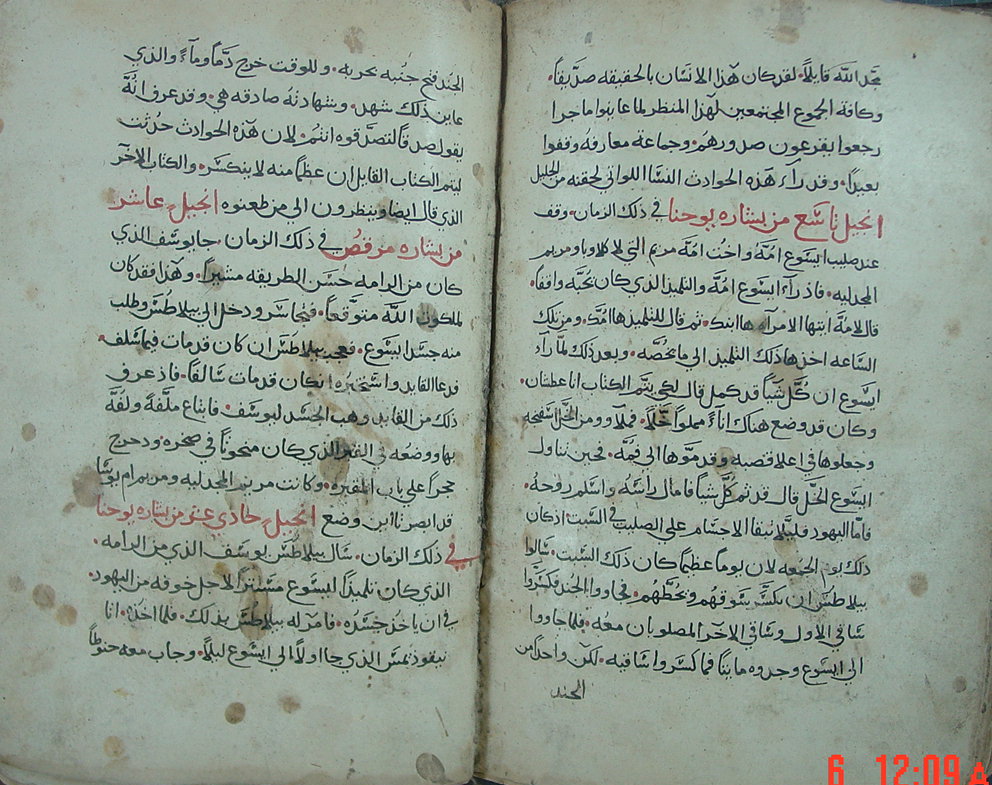 مجد الله قايلاً. لقد كان هذا الانسان بالحقيقه صدّيقاً.
وكافة الجموع المجتمعين لهذا المنظر لما عاينوا ما جرا
رجعوا يقرعون صدورهم. وجماعة معارفه وقفوا
بعيداً. وقد رآء هذه الحوادث النسا اللواتي لحقنه من الجليل
انجيل تاسع من بشاره يوحنا في ذلك الزمان. وقف
عند صليب ايسوع امّه واخت امّه مريم التي لاكلاوبا ومريم
المجدليه. فاذ رآء ايسوع امّه والتلميذ الذي كان يحبّه واقفاً.
قال لامّه ايتها الامرآه ها ابنك. ثم قال للتلميذ ها امّك. ومن تلك
السّاعه اخذها ذلك التلميذ الى ما يخصّه. وبعد ذلك لما رآء
ايسوع ان كلّ شياً قد كمل قال لكي يتم الكتاب انا عطشان.
وكان قد وضع هناك اناءً مملواً خلّاً. فملاوو من الخل اسفنجه
وجعلوها في اعلا قصبه وقدموها الى فمه. فحين تناول
ايسوع الخل قال قد تم كلّ شياً فامال رآسه واسلم روحه.
فامّا اليهود فليلا تبقا الاجسام على الصليب في السّبت اذ كان
ذلك يوم الجمعه لان يوماً عظيماً كان ذلك السّبت. سالوا
بيلاطس ان تكسّر سوقهم ويحطهم. فجاووا الجند فكسّروا
ساقي الاول وساقي الاخر المصلوبان معه. فلما جاووا
الى ايسوع وجدوه مايتاً فما كسروا ساقيه. لكن واحداً من
الجند
الجند فتح جنبه بحربه. وللوقت خرج دمّاً ومآءً والذي
عاين ذلك شهد. وشهادته صادقه هي. وقد عرف انّه
يقول صدقاً لتصدّقوه انتم. لان هذه الحوادث حدثت
ليتم الكتاب القايل ان عظماً منه لا ينكسر. والكتاب الاخر
الذي قال ايضا وينظرون الى من طعنوه انجيل عاشر
من بشاره مرقص في ذلك الزمان. جا يوسف الذي
كان من الرامه حسن الطريقه مشيراً. وهذا فقد كان
لملكوت الله متوقعاً. فتجاسر ودخل الى بيلاطس وطلب
منه جسد ايسوع. فعجب بيلاطس ان كان قد مات فيما سلف.
فدعا القايد واستخبره ان كان قد مات سالفاً. فاذ عرف
ذلك من القايد وهب الجسد ليوسف. فابتاع ملفةً ولفّه
بها ووضعه في القبر الذي كان منحوتاً في صخره ودحرج
حجراً على باب المقبره. وكانت مريم المجدليه ومريم ام يوسا
قد ابصرتا اين وضع انجيل حادي عشر من بشاره يوحنا
في ذلك الزمان. سال بيلاطس يوسف الذي من الرامه.
الذي كان تلميذاً لايسوع مستتراً لاجل خوفه من اليهود.
في ان ياخذ جسده. فامر له بيلاطس بذلك. فلما اخذه. اتا
نيقوذيمس الذي جا اولاً الى ايسوع ليلاً. وجاب معه حنوطاً
6 12:09 A